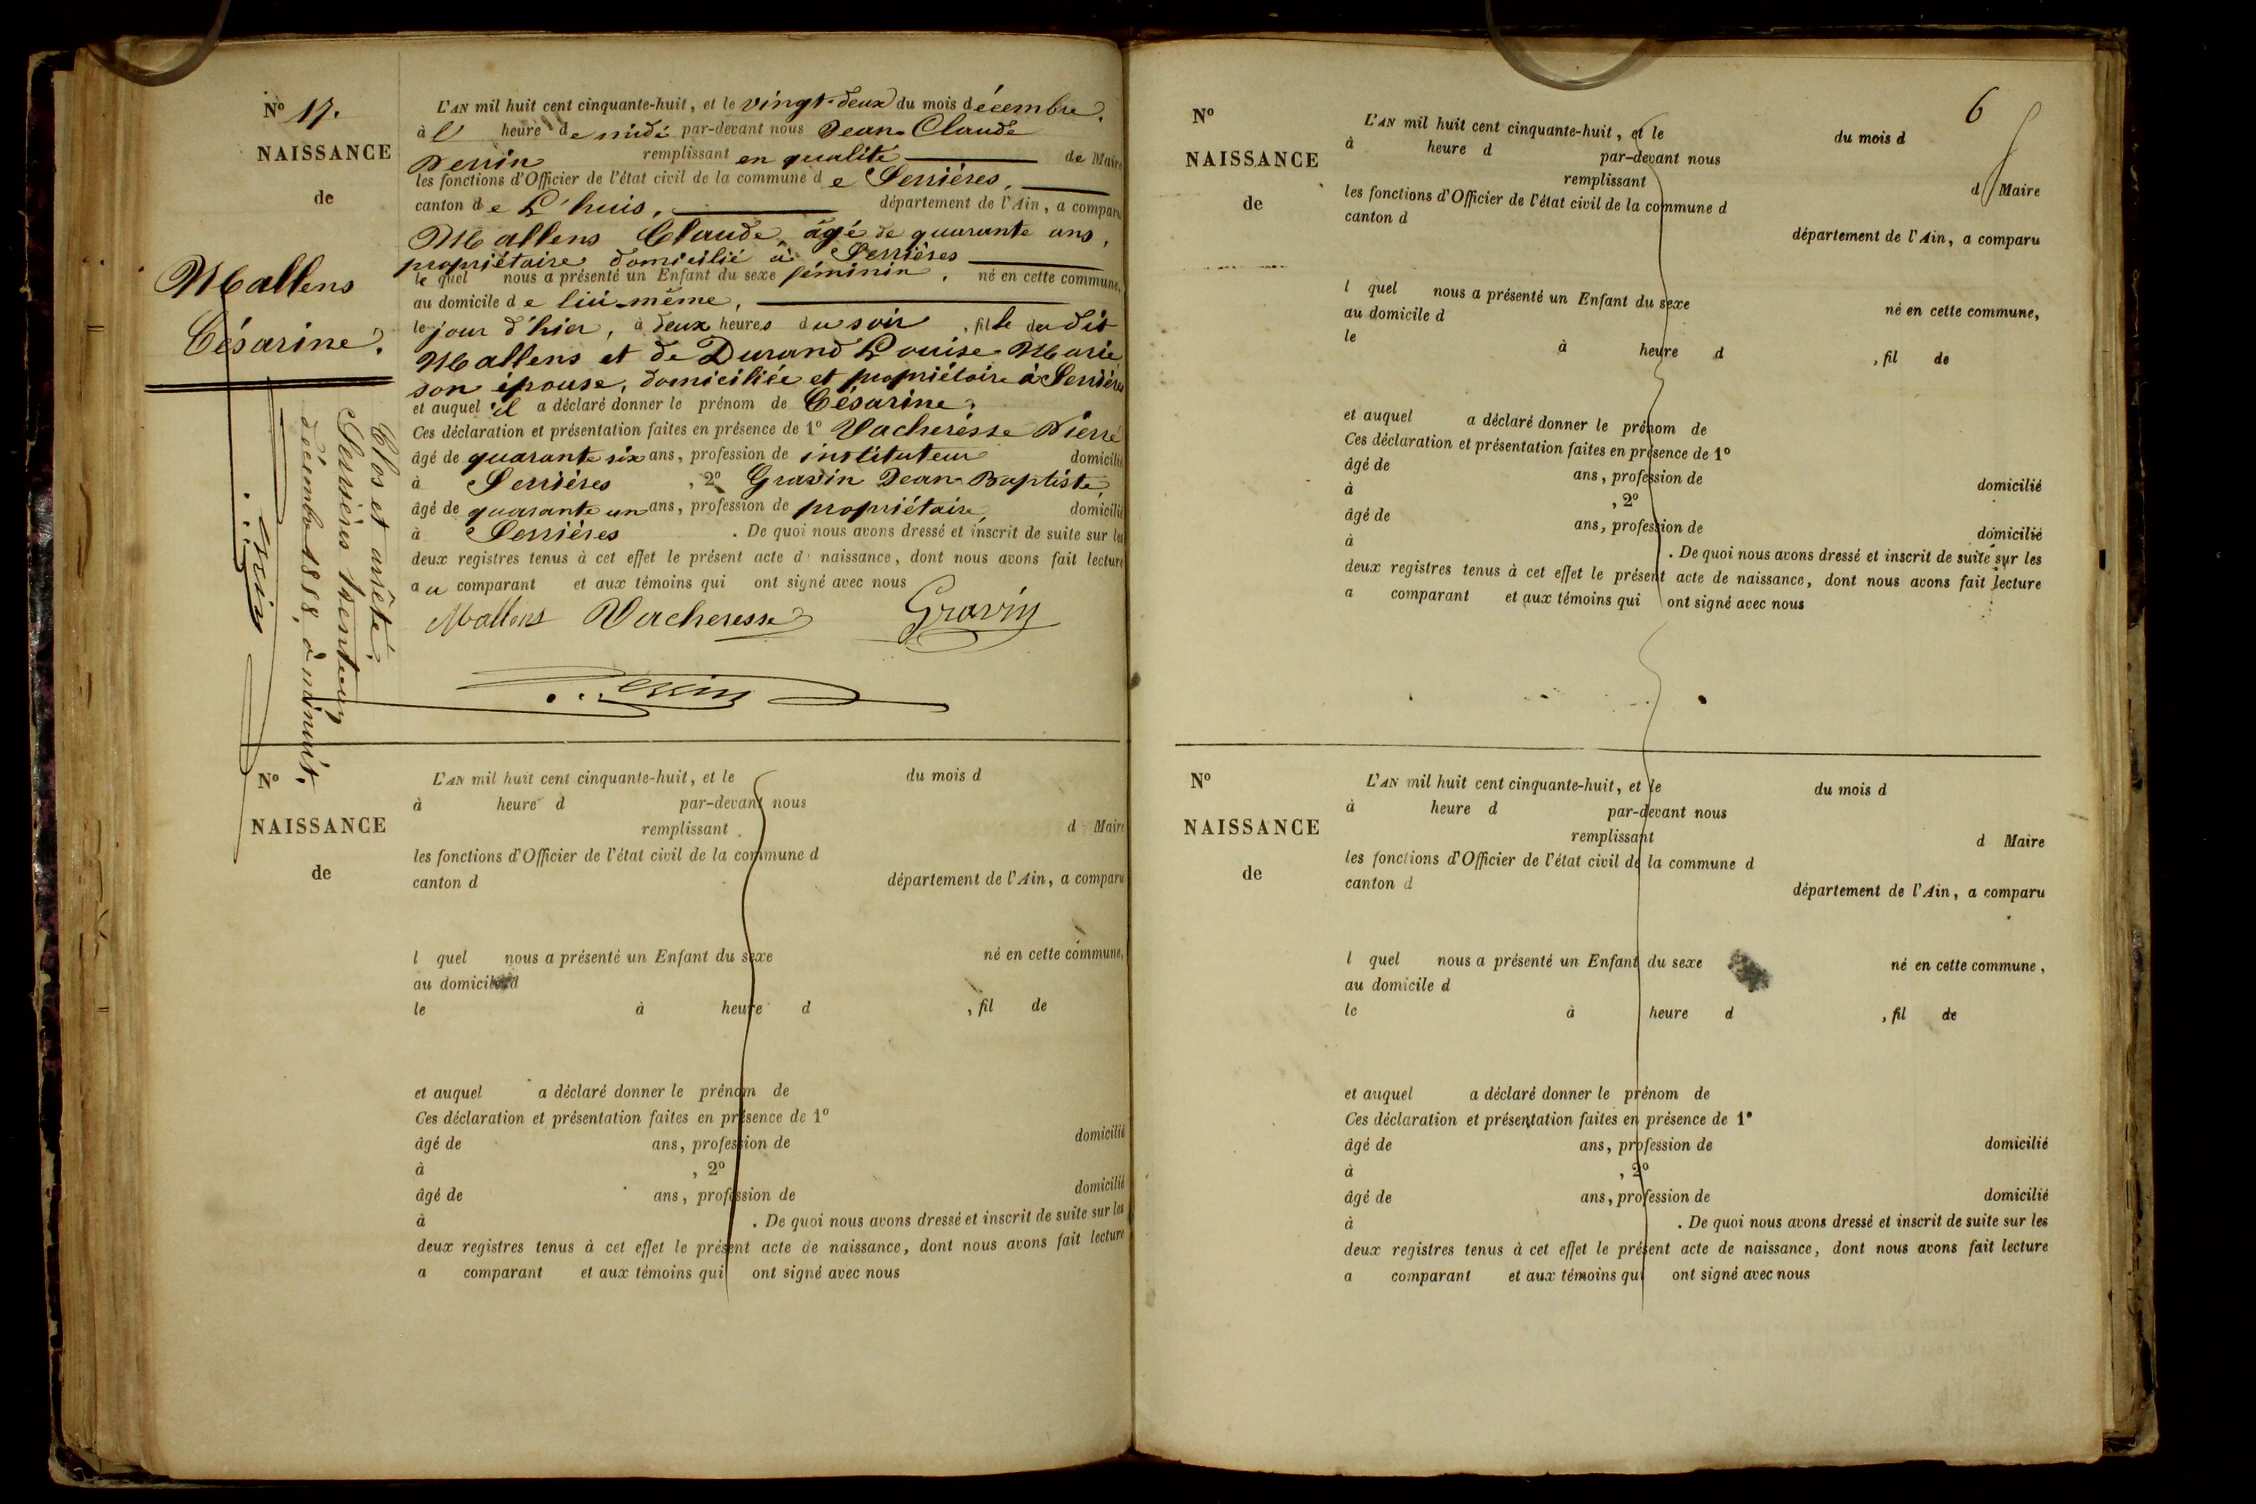 N° 17.
NAISSANCE
de
Mallens
Césarine.
L'AN mil huit cent cinquante-huit, et le vingt-deux du mois décembre,
à l' heure de midi par-devant nous Jean-Claude
Perrin remplissant en qualité de Maire
les fonctions d'Officier de l'état civil de la commune de Serrières,
canton de L'huis, département de l'Ain, a comparu
Mallens Claude, âgé de quarante ans,
propriétaire domicilié à Serrières
le quel nous a présenté un Enfant du sexe féminin, né en cette commune,
au domicile de lui-même,
le jour d'hier, à deux heures du soir, fille du dit
Mallens et de Durand Louise-Marie
son épouse, domiciliée et propriétaire à Serrières
et auquel il a déclaré donner le prénom de Césarine.
Ces déclaration et présentation faites en présence de 1° Vacheresse Pierre
âgé de quarante six ans, profession de instituteur domicilié
à Serrières, 2° Gravin Jean-Baptiste,
âgé de quarante un ans, profession de propriétaire, domicilié
à Serrières. De quoi nous avons dressé et inscrit de suite sur les
deux registres tenus à cet effet le présent acte de naissance, dont nous avons fait lecture
au comparant et aux témoins qui ont signé avec nous
Mallens Vacheresse Gravin
Perrin
Clos et arrêté à
Serrières trente un
décembre 1858, à minuit.
Perrin
N°
NAISSANCE
de
L'AN mil huit cent cinquante-huit, et le du mois d
à heure d par-devant nous
remplissant d Maire
les fonctions d'Officier de l'état civil de la commune d
canton d département de l'Ain, a comparu
l quel nous a présenté un Enfant du sexe né en cette commune,
au domicile d
le à heure d , fil de
et auquel a déclaré donner le prénom de
Ces déclaration et présentation faites en présence de 1°
âgé de ans, profession de domicilié
à , 2°
âgé de ans, profession de domicilié
à . De quoi nous avons dressé et inscrit de suite sur les
deux registres tenus à cet effet le présent acte de naissance, dont nous avons fait lecture
a comparant et aux témoins qui ont signé avec nous
6
N°
NAISSANCE
de
L'AN mil huit cent cinquante-huit, et le du mois d
à heure d par-devant nous
remplissant d Maire
les fonctions d'Officier de l'état civil de la commune d
canton d département de l'Ain, a comparu
l quel nous a présenté un Enfant du sexe né en cette commune,
au domicile d
le à heure d , fil de
et auquel a déclaré donner le prénom de
Ces déclaration et présentation faites en présence de 1°
âgé de ans, profession de domicilié
à , 2°
âgé de ans, profession de domicilié
à . De quoi nous avons dressé et inscrit de suite sur les
deux registres tenus à cet effet le présent acte de naissance, dont nous avons fait lecture
a comparant et aux témoins qui ont signé avec nous
N°
NAISSANCE
de
L'AN mil huit cent cinquante-huit, et le du mois d
à heure d par-devant nous
remplissant d Maire
les fonctions d'Officier de l'état civil de la commune d
canton d département de l'Ain, a comparu
l quel nous a présenté un Enfant du sexe né en cette commune,
au domicile d
le à heure d , fil de
et auquel a déclaré donner le prénom de
Ces déclaration et présentation faites en présence de 1°
âgé de ans, profession de domicilié
à , 2°
âgé de ans, profession de domicilié
à . De quoi nous avons dressé et inscrit de suite sur les
deux registres tenus à cet effet le présent acte de naissance, dont nous avons fait lecture
a comparant et aux témoins qui ont signé avec nous